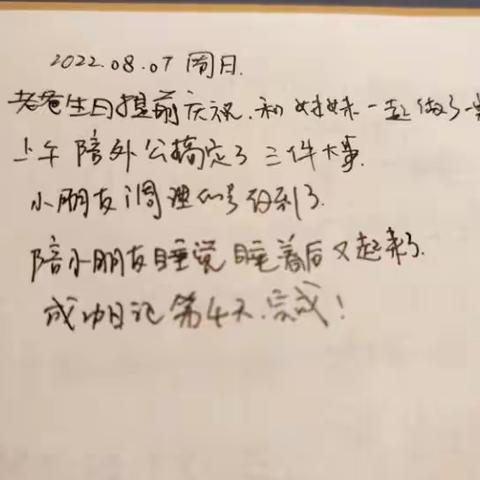 2022.08.07 周日.
老爸生日提前庆祝.和妹妹一起做了一
上午陪外公搞定了三件大事.
小朋友调理的号约到了.
陪小朋友睡觉睡着后又起来了.
成功日记第4天.完成!